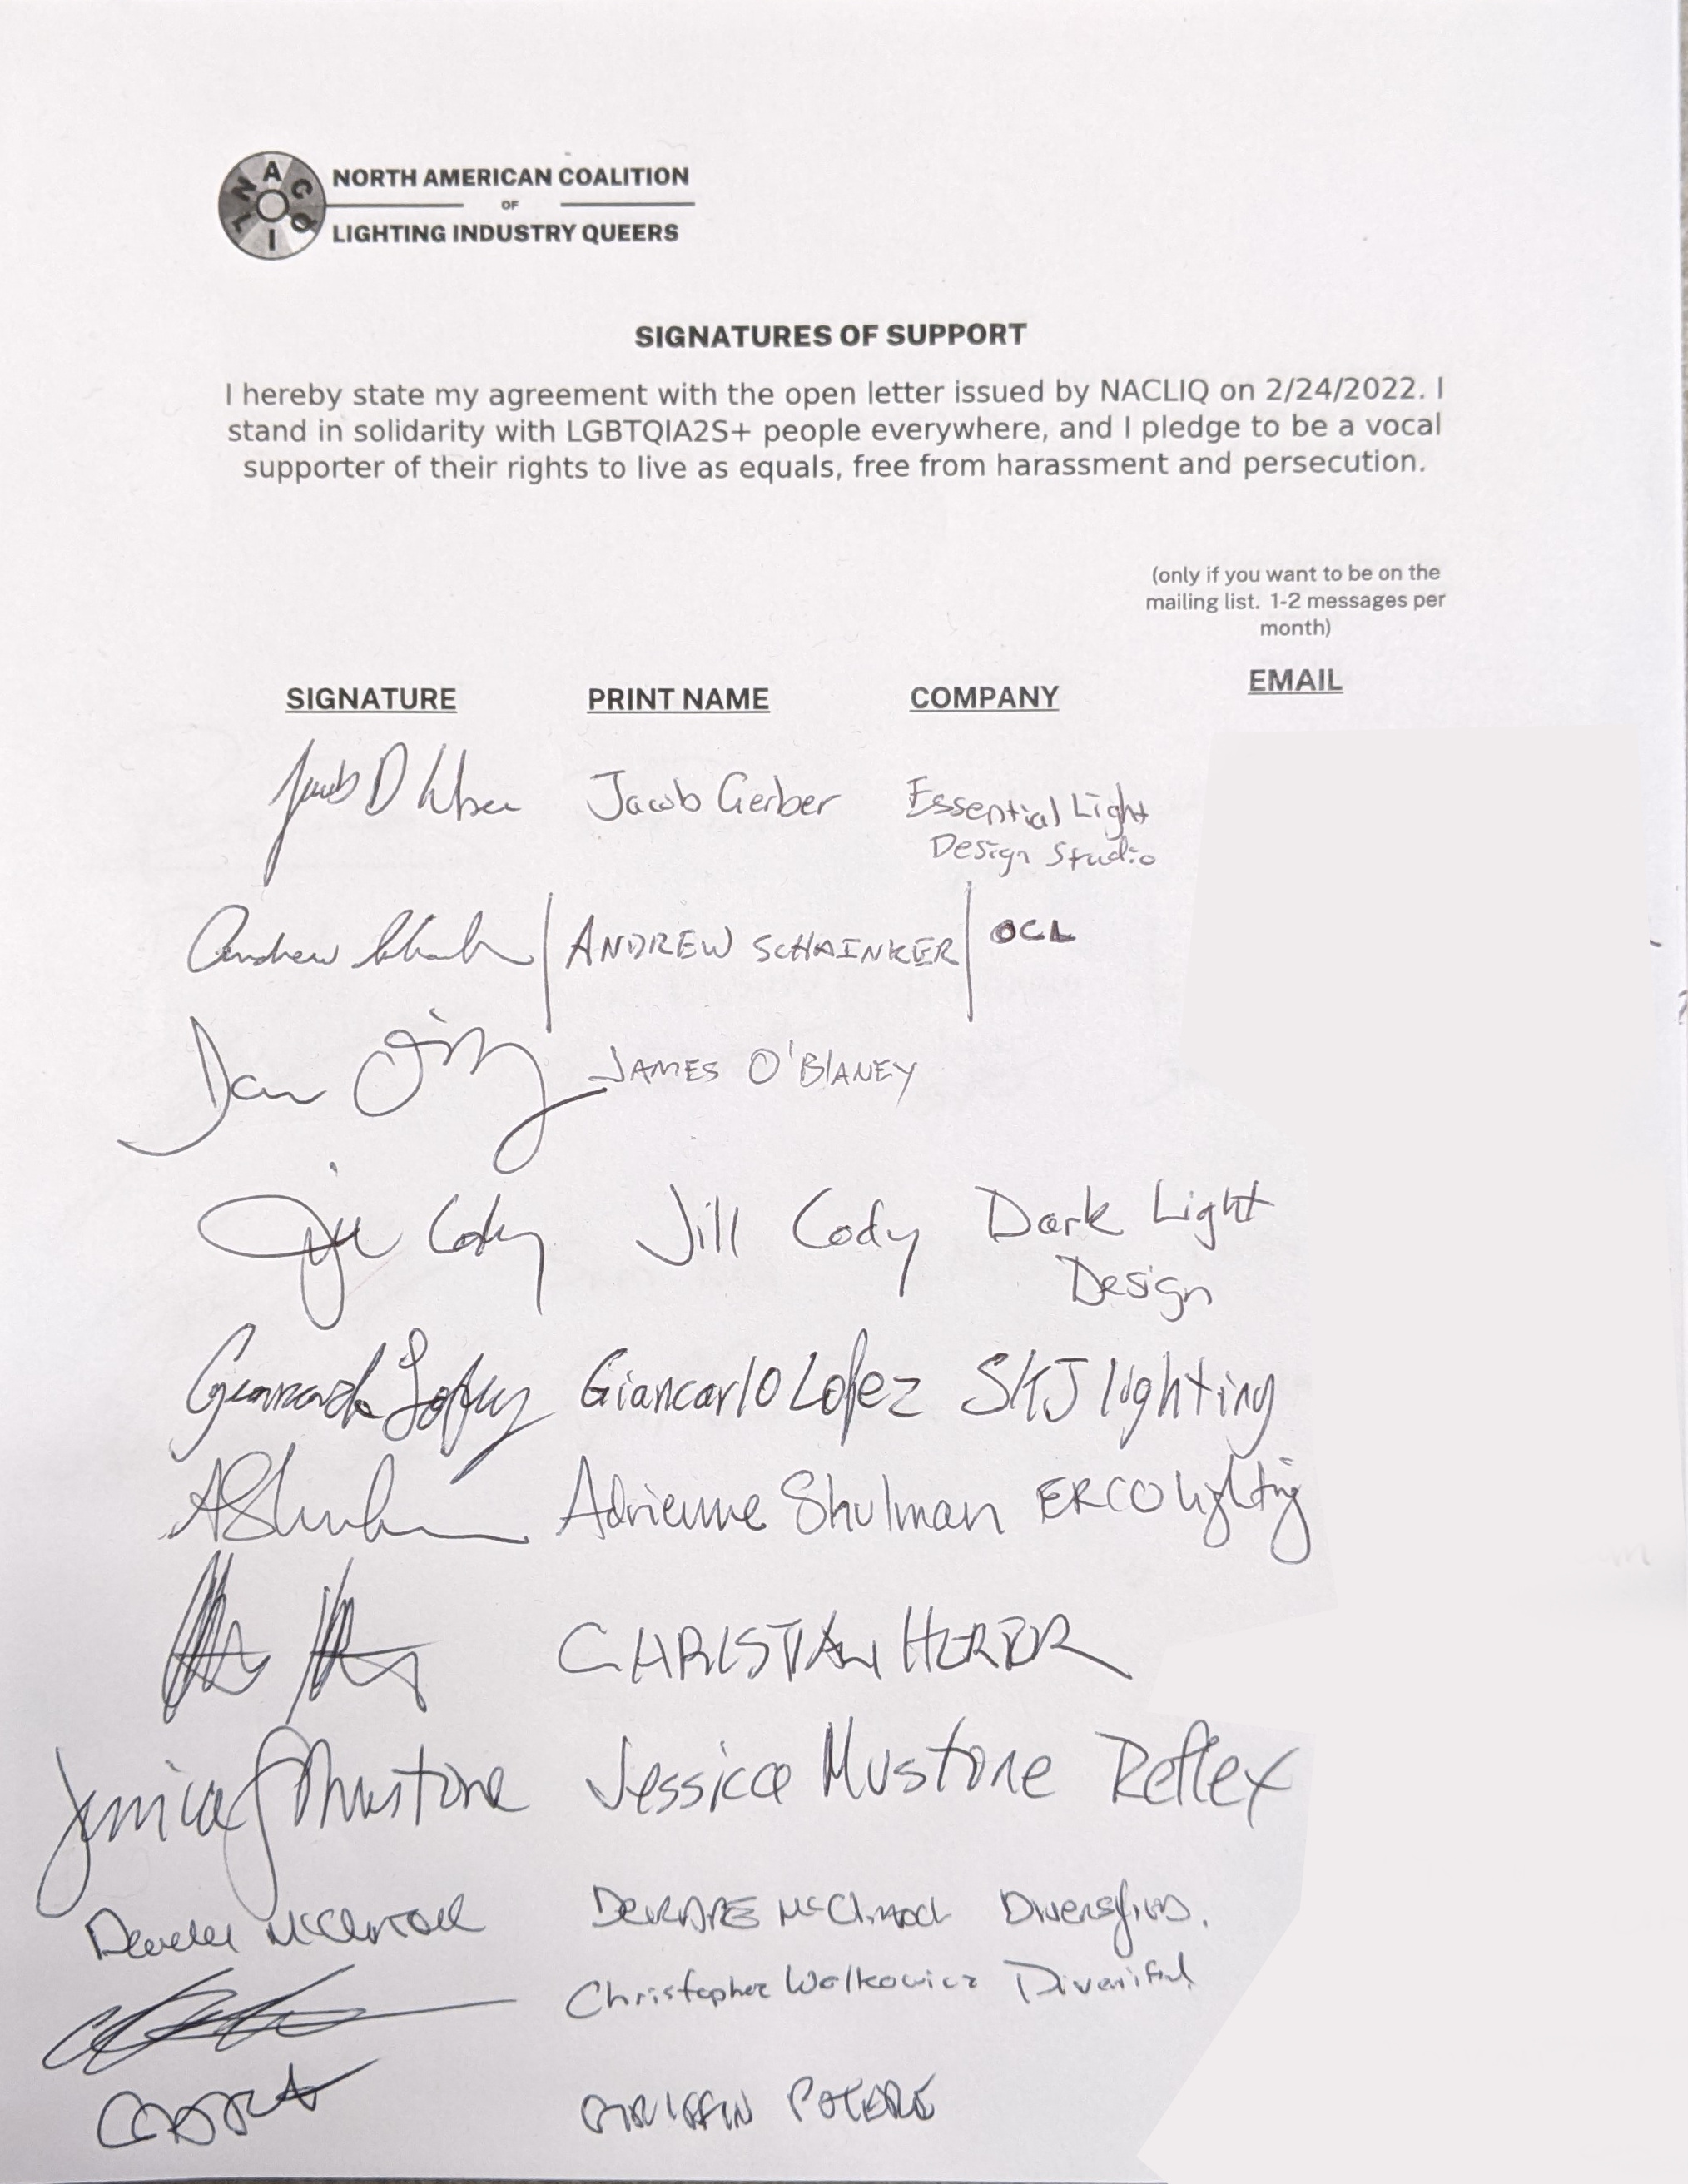 NACLIQ
NORTH AMERICAN COALITION
OF
LIGHTING INDUSTRY QUEERS
SIGNATURES OF SUPPORT
I hereby state my agreement with the open letter issued by NACLIQ on 2/24/2022. I
stand in solidarity with LGBTQIA2S+ people everywhere, and I pledge to be a vocal
supporter of their rights to live as equals, free from harassment and persecution.
(only if you want to be on the
mailing list. 1-2 messages per
month)
SIGNATURE PRINT NAME COMPANY EMAIL
Jacob D Gerber Jacob Gerber Essential Light
Design Studio
Andrew ANDREW SCHAINKER OCL
JAMES O'BlANEY
Jill Cody Jill Cody Dark Light
Design
Giancarlo Lopez Giancarlo Lopez SKJ lighting
AShulman Adrienne Shulman ERCO lighting
CHRISTIAN HERR
Jessica Mustone Jessica Mustone Reflex
Christopher Walkowicz
GRIFFIN